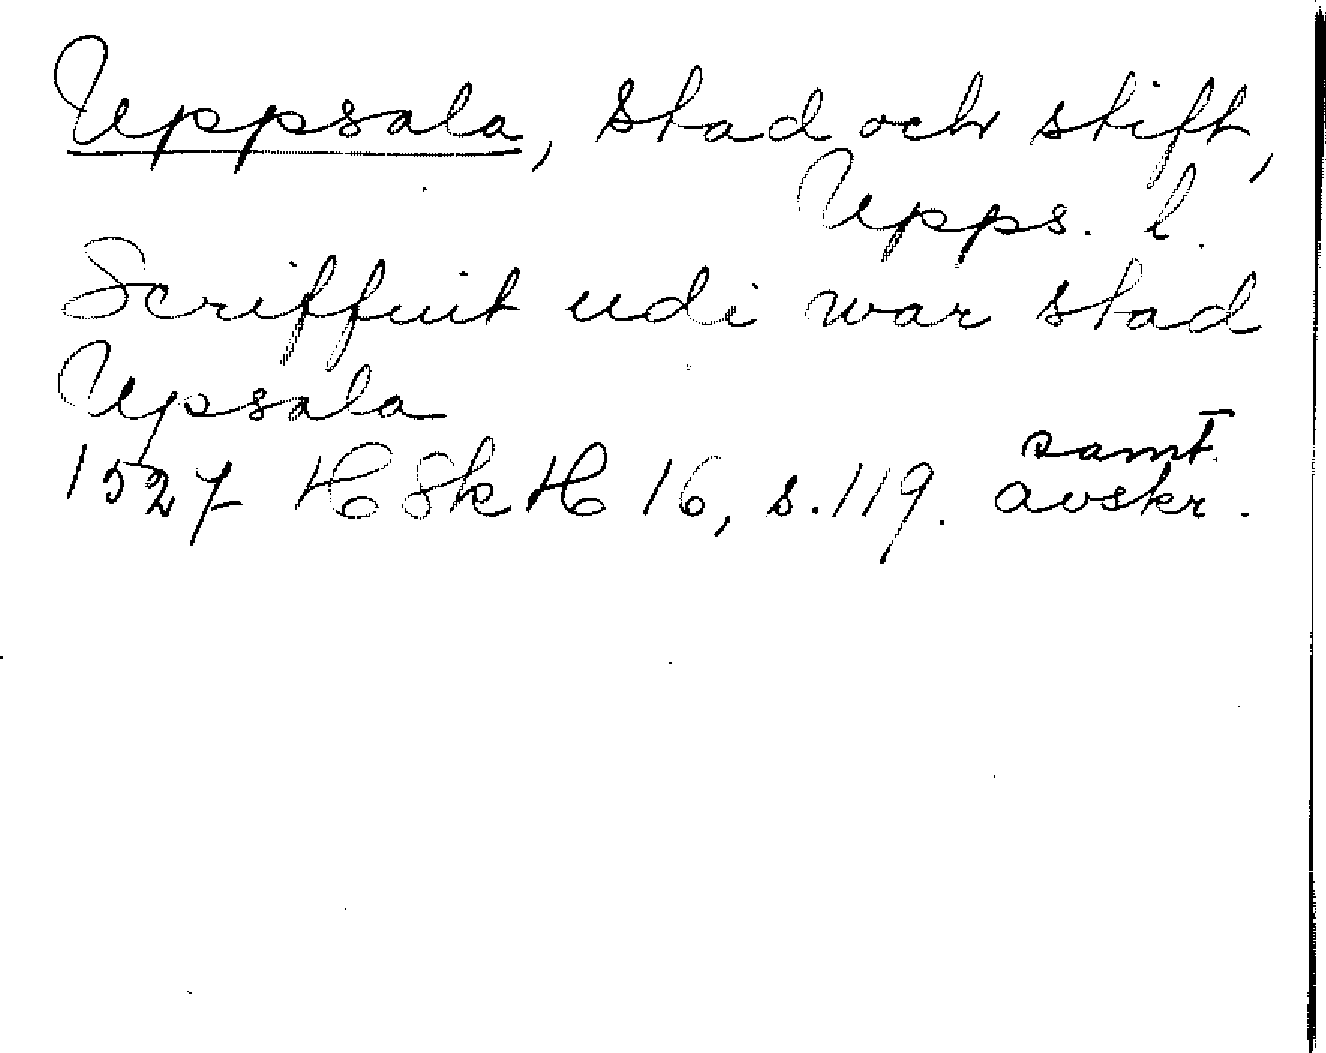 Uppsala, stad och stift,
Upps. l.
Scriffuit udi war stad
Upsala
samt.
1527 HSkH 16, s. 119. avskr.